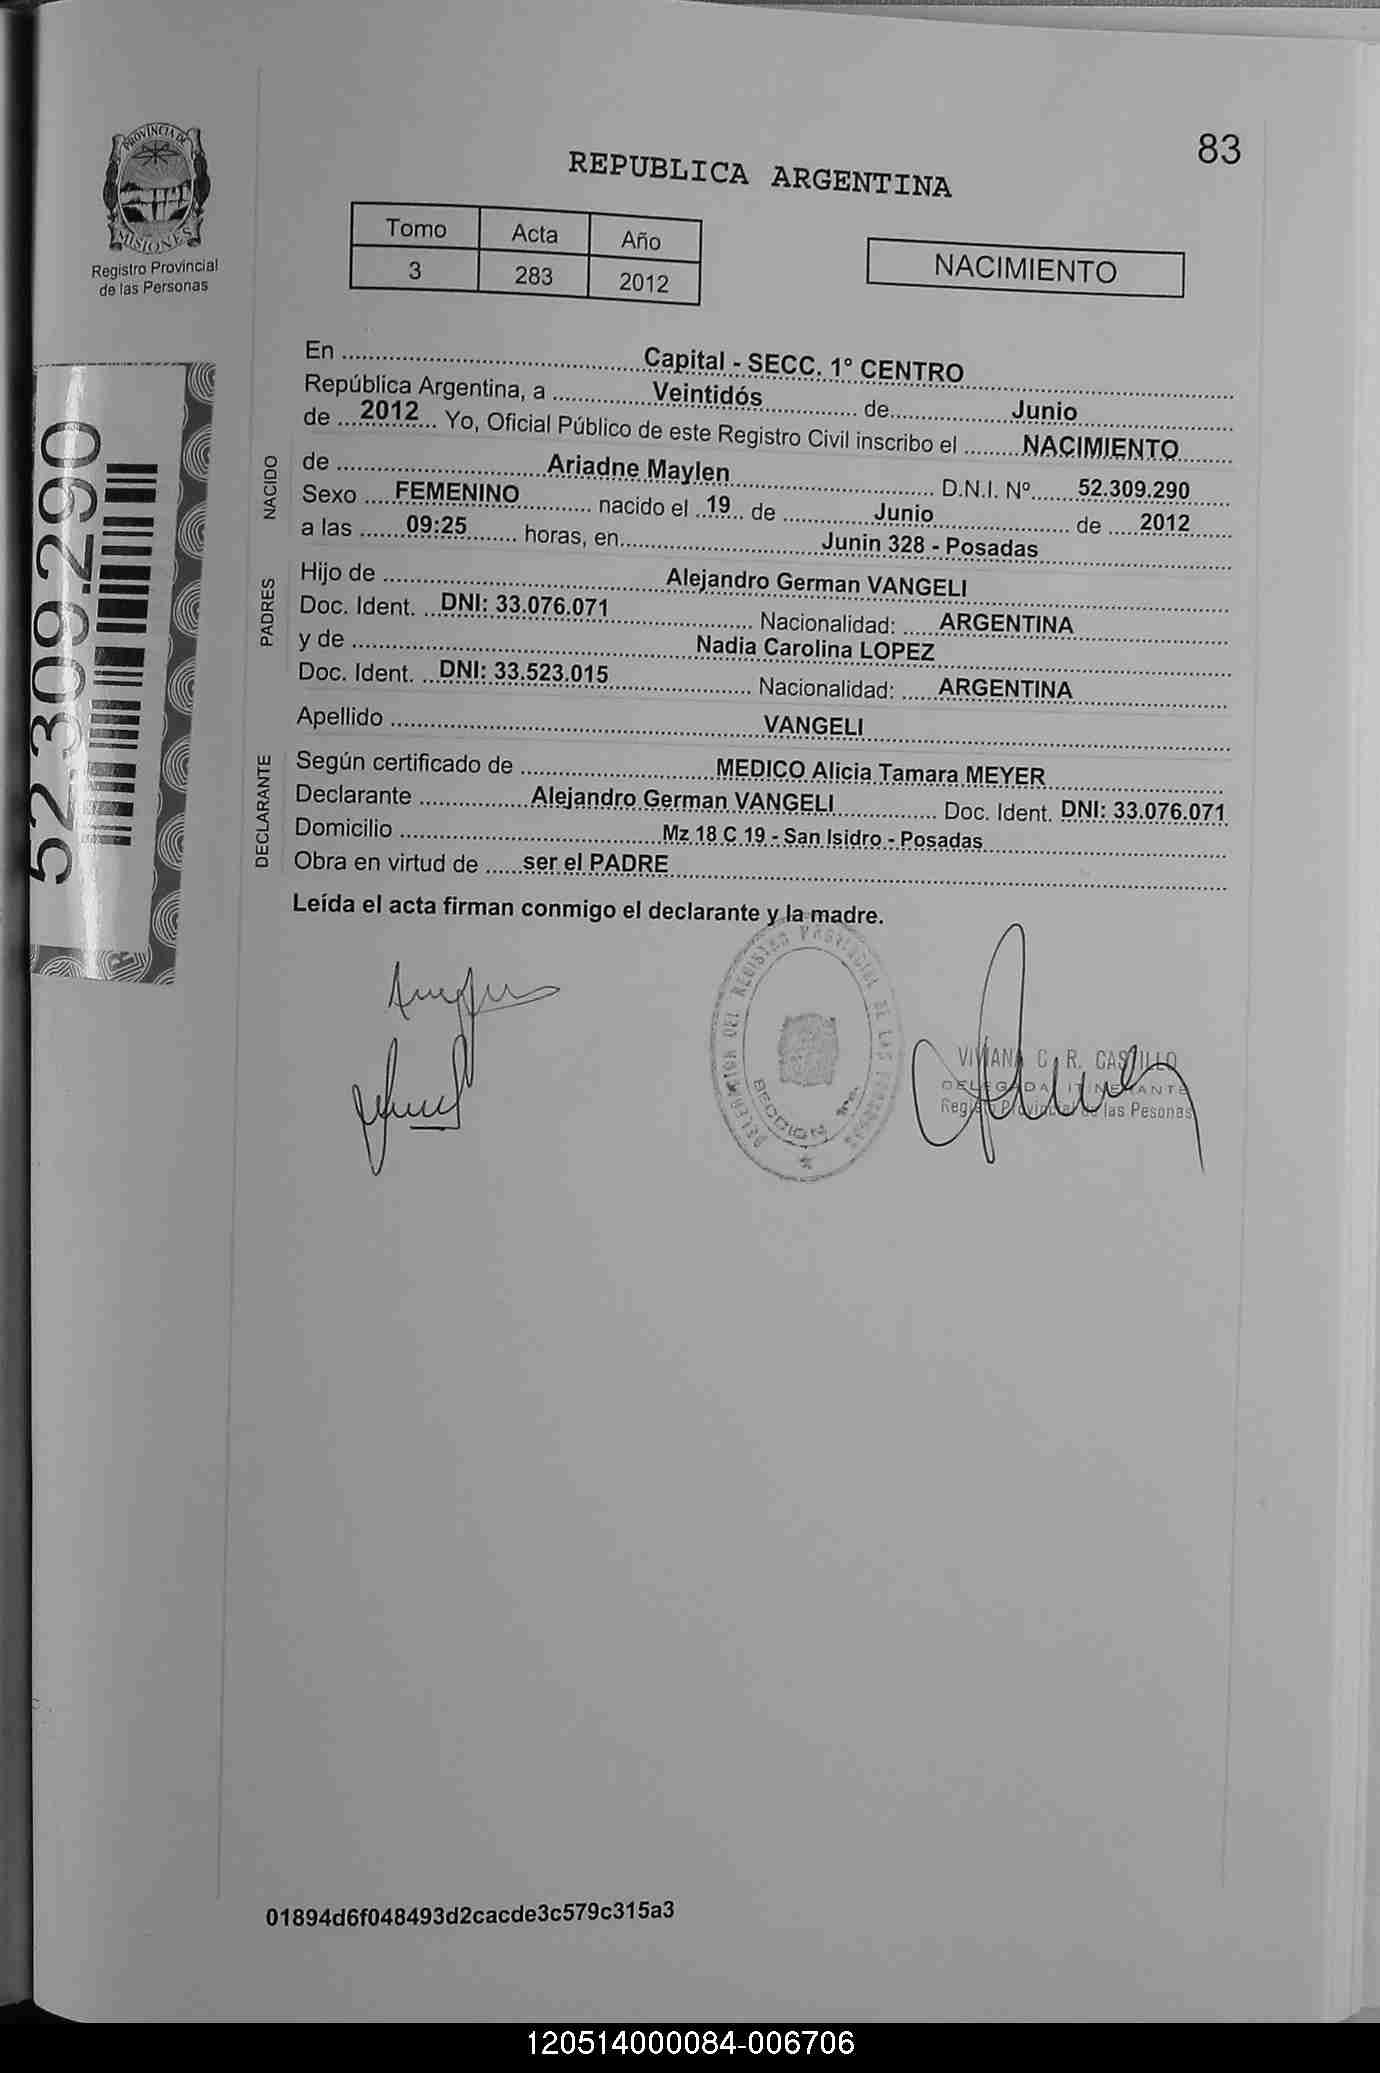 83
PROVINCIA DE
MISIONES
Registro Provincial
de las Personas
REPUBLICA ARGENTINA
Tomo Acta Año
3 283 2012
NACIMIENTO
52.309.290
En Capital - SECC. 1° CENTRO
República Argentina, a Veintidós de Junio
de 2012 Yo, Oficial Público de este Registro Civil inscribo el NACIMIENTO
NACIDO
de Ariadne Maylen D.N.I. Nº 52.309.290
Sexo FEMENINO nacido el 19 de Junio de 2012
a las 09:25 horas, en Junin 328 - Posadas
PADRES
Hijo de Alejandro German VANGELI
Doc. Ident. DNI: 33.076.071 Nacionalidad: ARGENTINA
y de Nadia Carolina LOPEZ
Doc. Ident. DNI: 33.523.015 Nacionalidad: ARGENTINA
Apellido VANGELI
DECLARANTE
Según certificado de MEDICO Alicia Tamara MEYER
Declarante Alejandro German VANGELI Doc. Ident. DNI: 33.076.071
Domicilio Mz 18 C 19 - San Isidro - Posadas
Obra en virtud de ser el PADRE
Leída el acta firman conmigo el declarante y la madre.
DELEGACION DEL REGISTRO PROVINCIAL DE LAS PERSONAS
SECCION 1ra.
VIVIANA C. R. CASTILLO
DELEGADA ITINERANTE
Registro Provincial de las Pesonas
01894d6f048493d2cacde3c579c315a3
120514000084-006706